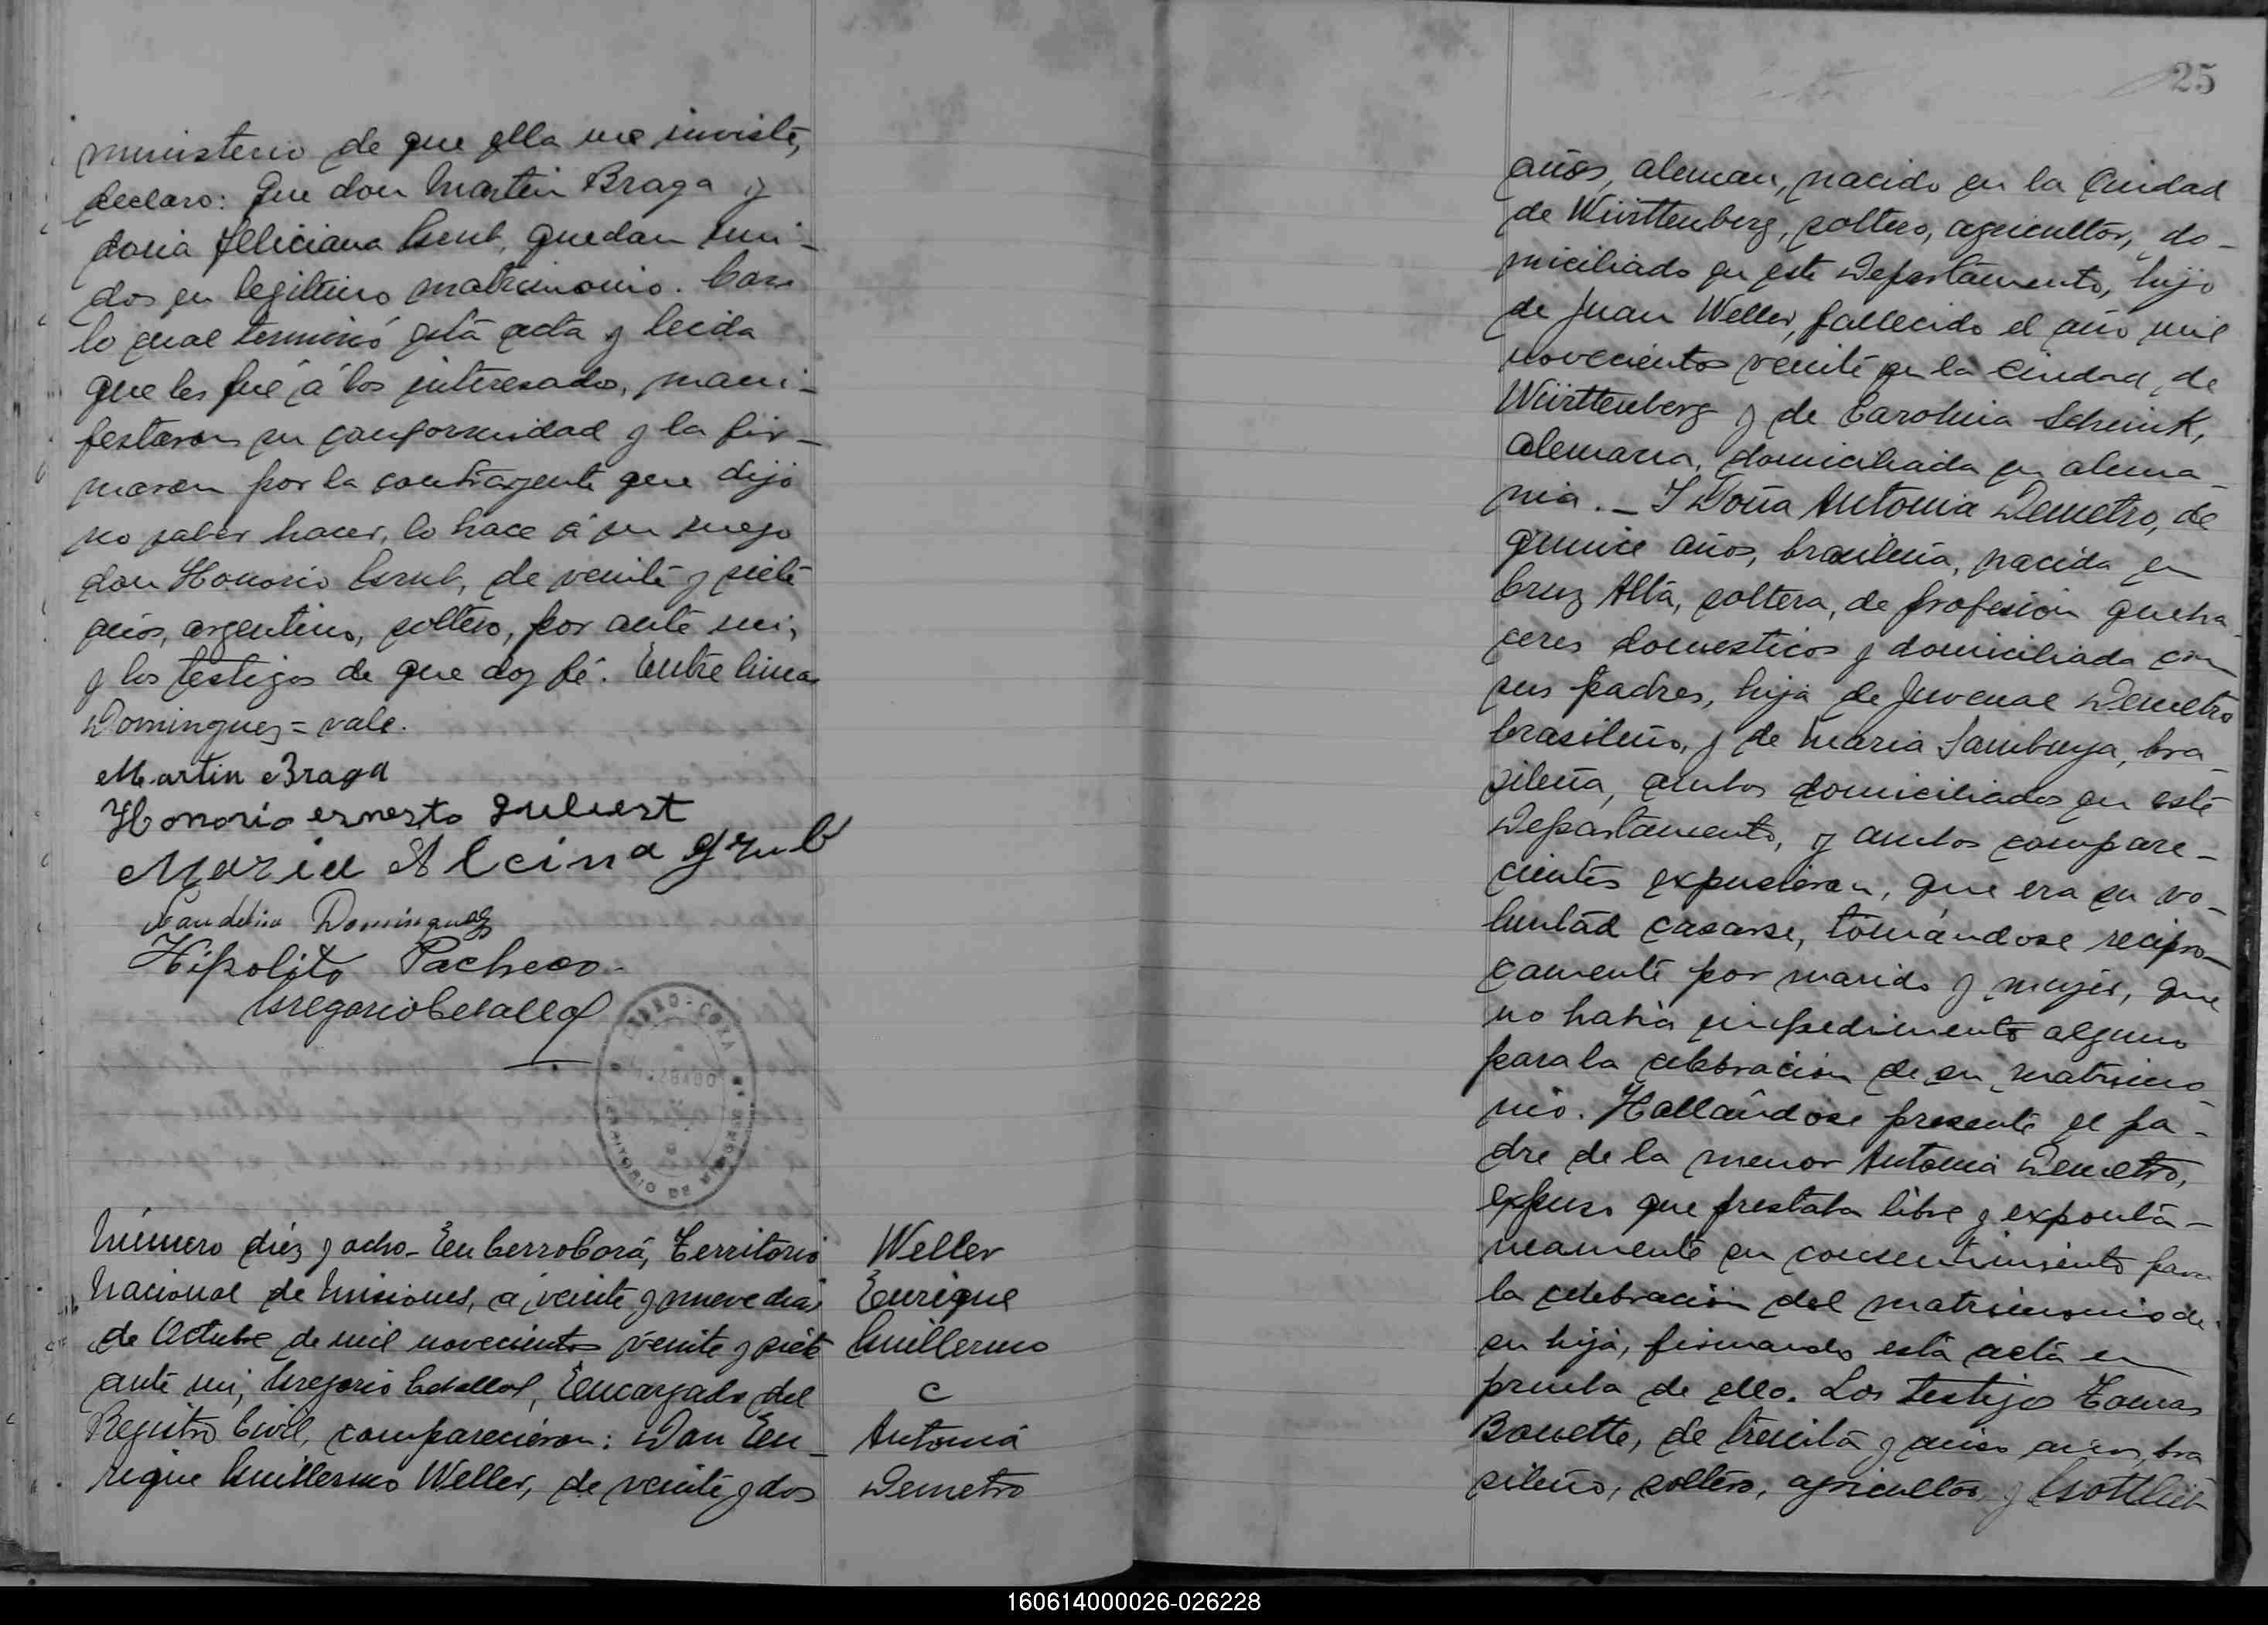 ministerio de que ella me inviste,
declaro: Que don Martin Braga y
doña Feliciana Grub, quedan uni-
dos en legitimo matrimonio. Con
lo cual terminó esta acta y leida
que les fué á los interesados, mani-
festaron su conformidad y la fir-
maron por la contrayente que dijo
no saber hacer, lo hace á su ruego
don Honorio Grub, de veinte y siete
años, argentino, soltero, por ante mi,
y los testigos de que doy fé. Entre lineas
Dominguez = vale.
Martin Braga
Honorio ernesto
Maria Alcina grub
Dominguez
Hipolito Pacheco
Gregorio
LIBRO-COPIA
TERRITORIO DE MISIONES
Número diez y ocho - En Cerro Corá, Territorio
Nacional de Misiones, a veinte y nueve dias
de Octubre de mil novecientos veinte y siete
ante mi, Gregorio Encargado del
Registro Civil, comparecieron: Don En-
rique Guillermo Weller, de veinte y dos
Weller
Enrique
Guillermo
c
Antonia
Demetro
25
años, aleman, nacido en la Ciudad
de Württenberg, soltero, agricultor, do-
miciliado en este Departamento, hijo
de Juan Weller, fallecido el año mil
novecientos veinte en la Ciudad de
Württenberg y de Carolina Schenk,
alemana, domiciliada en alema-
nia. - Y Doña Antonia Demetro, de
quince años, brasileña, nacida en
Cruz Alta, soltera, de profesión queha-
ceres domesticos y domiciliada con
sus padres, hija de Juvenal Demetro
brasileño, y de Maria Sambuya, bra-
sileña, ambos domiciliados en este
Departamento, y ambos compare-
cientes expusieron, que era su vo-
luntad casarse, tomándose recipro-
camente por marido y mujer, que
no habia impedimento alguno
para la celebracion de su matrimo-
nio. Hallándose presente el pa-
dre de la menor Antonia Demetro,
expuso que prestaba libre y expontá-
neamente su consentimiento para
la celebración del matrimonio de
su hija, firmando esta acta en
prueba de ello. Los testigos Tomas
Bonette, de treinta y cinco años, bra
sileño, soltero, agricultor, y Gottlieb
160614000026-026228